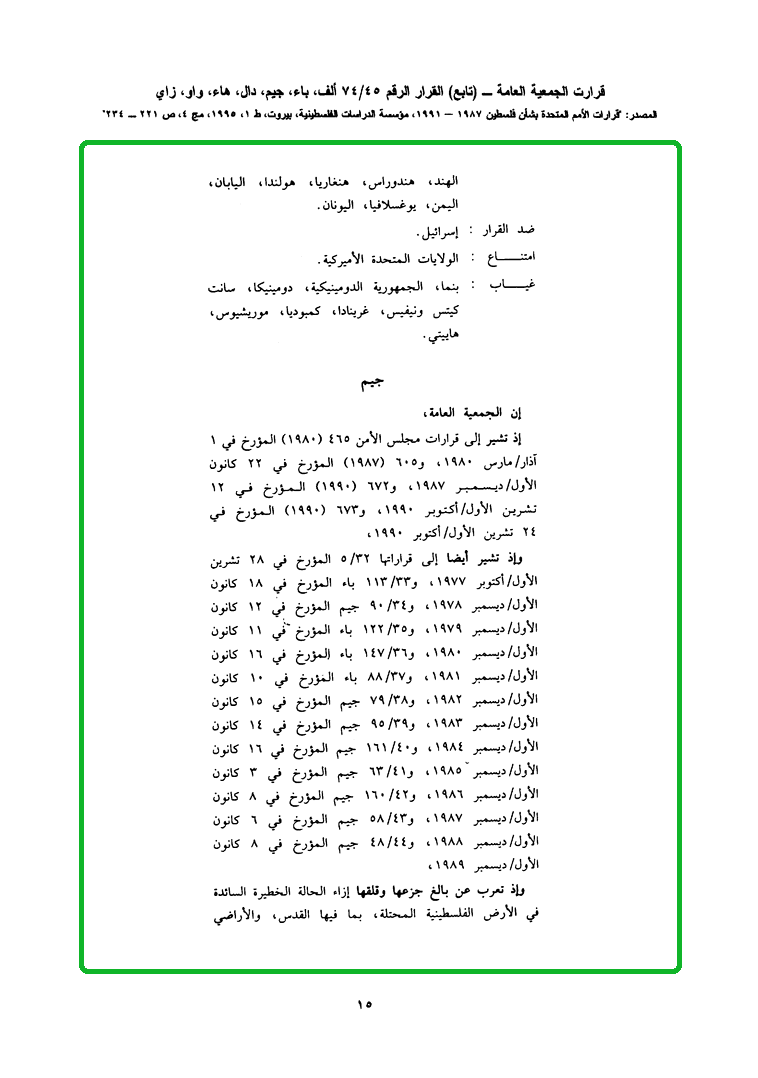 قرارت الجمعية العامة ــ (تابع) القرار الرقم ٧٤/٤٥ ألف، باء، جيم، دال، هاء، واو، زاي
المصدر: "قرارات الأمم المتحدة بشأن فلسطين ١٩٨٧ – ١٩٩١، مؤسسة الدراسات الفلسطينية، بيروت، ط ١، ١٩٩٥، مج ٤، ص ٢٢١ ــ ٢٣٤"
الهند، هندوراس، هنغاريا، هولندا، اليابان،
اليمن، يوغسلافيا، اليونان.
ضد القرار : إسرائيل.
امتنـــــاع : الولايات المتحدة الأميركية.
غيـــــاب : بنما، الجمهورية الدومينيكية، دومينيكا، سانت
كيتس ونيفيس، غرينادا، كمبوديا، موريشيوس،
هاييتي.
جيم
إن الجمعية العامة،
إذ تشير إلى قرارات مجلس الأمن ٤٦٥ (١٩٨٠) المؤرخ في ١
آذار/مارس ١٩٨٠، و٦٠٥ (١٩٨٧) المؤرخ في ٢٢ كانون
الأول/ديسمبر ١٩٨٧، و٦٧٢ (١٩٩٠) المؤرخ في ١٢
تشرين الأول/أكتوبر ١٩٩٠، و٦٧٣ (١٩٩٠) المؤرخ في
٢٤ تشرين الأول/أكتوبر ١٩٩٠،
وإذ تشير أيضا إلى قراراتها ٥/٣٢ المؤرخ في ٢٨ تشرين
الأول/أكتوبر ١٩٧٧، و١١٣/٣٣ باء المؤرخ في ١٨ كانون
الأول/ديسمبر ١٩٧٨، و٩٠/٣٤ جيم المؤرخ في ١٢ كانون
الأول/ديسمبر ١٩٧٩، و١٢٢/٣٥ باء المؤرخ في ١١ كانون
الأول/ديسمبر ١٩٨٠، و١٤٧/٣٦ باء المؤرخ في ١٦ كانون
الأول/ديسمبر ١٩٨١، و٨٨/٣٧ باء المؤرخ في ١٠ كانون
الأول/ديسمبر ١٩٨٢، و٧٩/٣٨ جيم المؤرخ في ١٥ كانون
الأول/ديسمبر ١٩٨٣، و٩٥/٣٩ جيم المؤرخ في ١٤ كانون
الأول/ديسمبر ١٩٨٤، و١٦١/٤٠ جيم المؤرخ في ١٦ كانون
الأول/ديسمبر ١٩٨٥، و٦٣/٤١ جيم المؤرخ في ٣ كانون
الأول/ديسمبر ١٩٨٦، و١٦٠/٤٢ جيم المؤرخ في ٨ كانون
الأول/ديسمبر ١٩٨٧، و٥٨/٤٣ جيم المؤرخ في ٦ كانون
الأول/ديسمبر ١٩٨٨، و٤٨/٤٤ جيم المؤرخ في ٨ كانون
الأول/ديسمبر ١٩٨٩،
وإذ تعرب عن بالغ جزعها وقلقها إزاء الحالة الخطيرة السائدة
في الأرض الفلسطينية المحتلة، بما فيها القدس، والأراضي
١٥